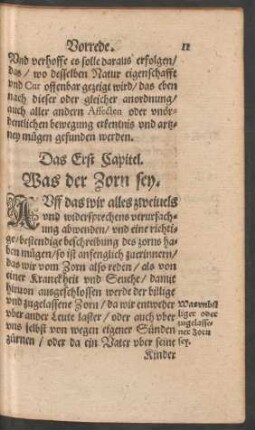 Vorrede. 11
Vnd verhoffe es solle daraus erfolgen/
das/ wo desselben Natur eigenschafft
vnd Cur offenbar gezeigt wird/ das eben
nach dieser oder gleicher anordnung/
auch aller andern Affecten oder vnör-
dentlichen bewegung erkentnis vnd artz-
ney mügen gefunden werden.
Das Erst Capitel.
Was der Zorn sey.
AVff das wir alles zweiuels
vnd widersprechens verursach-
ung abwenden/ vnd eine richti-
ge/ bestendige beschreibung des zorns ha-
ben mügen/ so ist anfenglich zuerinnern/
das wir vom Zorn also reden/ als von
einer Kranckheit vnd Seuche/ damit
hieruon ausgeschlossen werde der billige
vnd zugelassene Zorn/ da wir entweder
vber ander Leute laster/ oder auch vber
vns selbst von wegen eigener Sünden
zürnen/ oder da ein Vater vber seine
Kinder
Was
liger oder
zugelasse-
ner Zorn
sey.